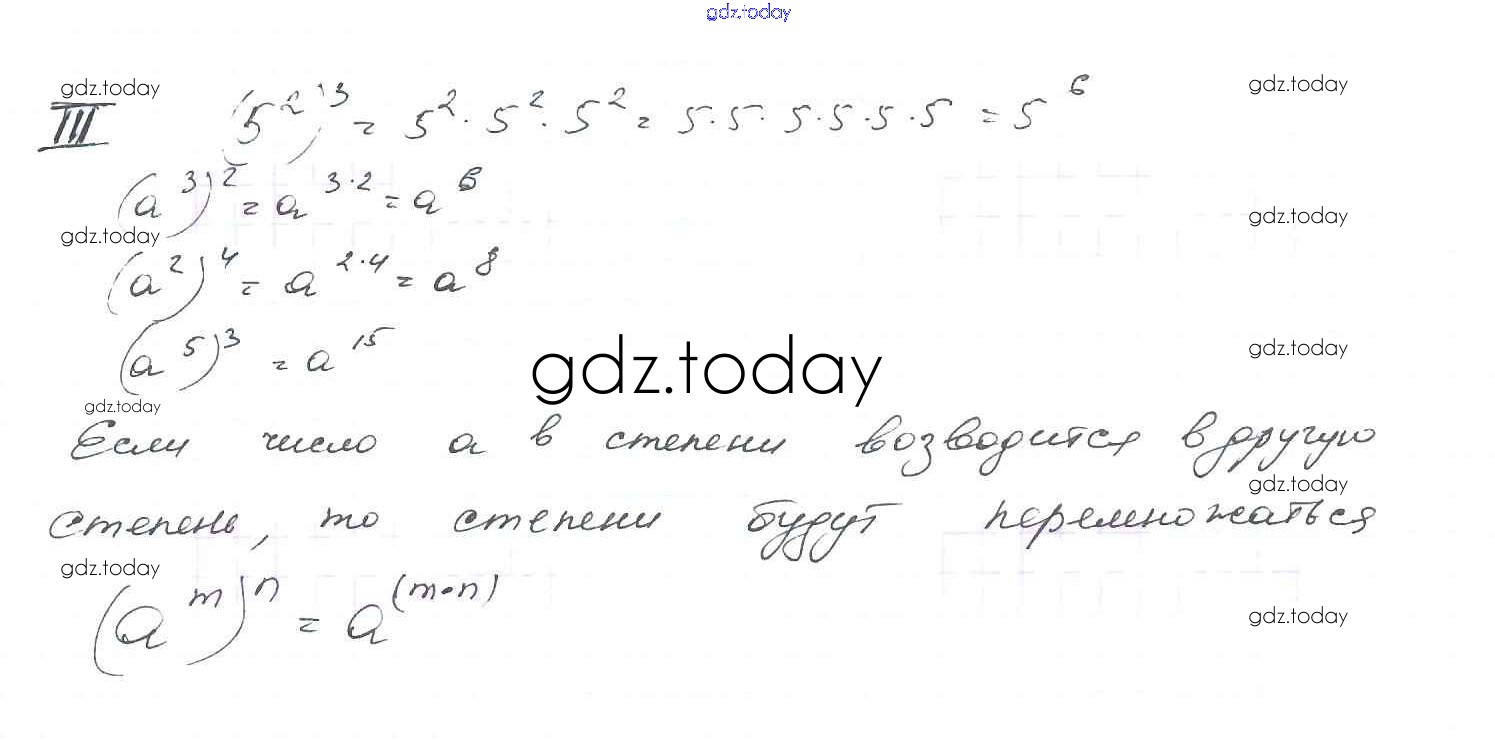 gdz.today
gdz.today gdz.today
III (5²)³ = 5² · 5² · 5² = 5 · 5 · 5 · 5 · 5 · 5 = 5⁶
(a³)² = a³·² = a⁶
gdz.today gdz.today
(a²)⁴ = a²·⁴ = a⁸
(a⁵)³ = a¹⁵
gdz.today gdz.today
gdz.today
Если число a в степени возводится в другую
gdz.today
степень, то степени будут перемножаться
gdz.today
(a^m)^n = a^(m·n)
gdz.today